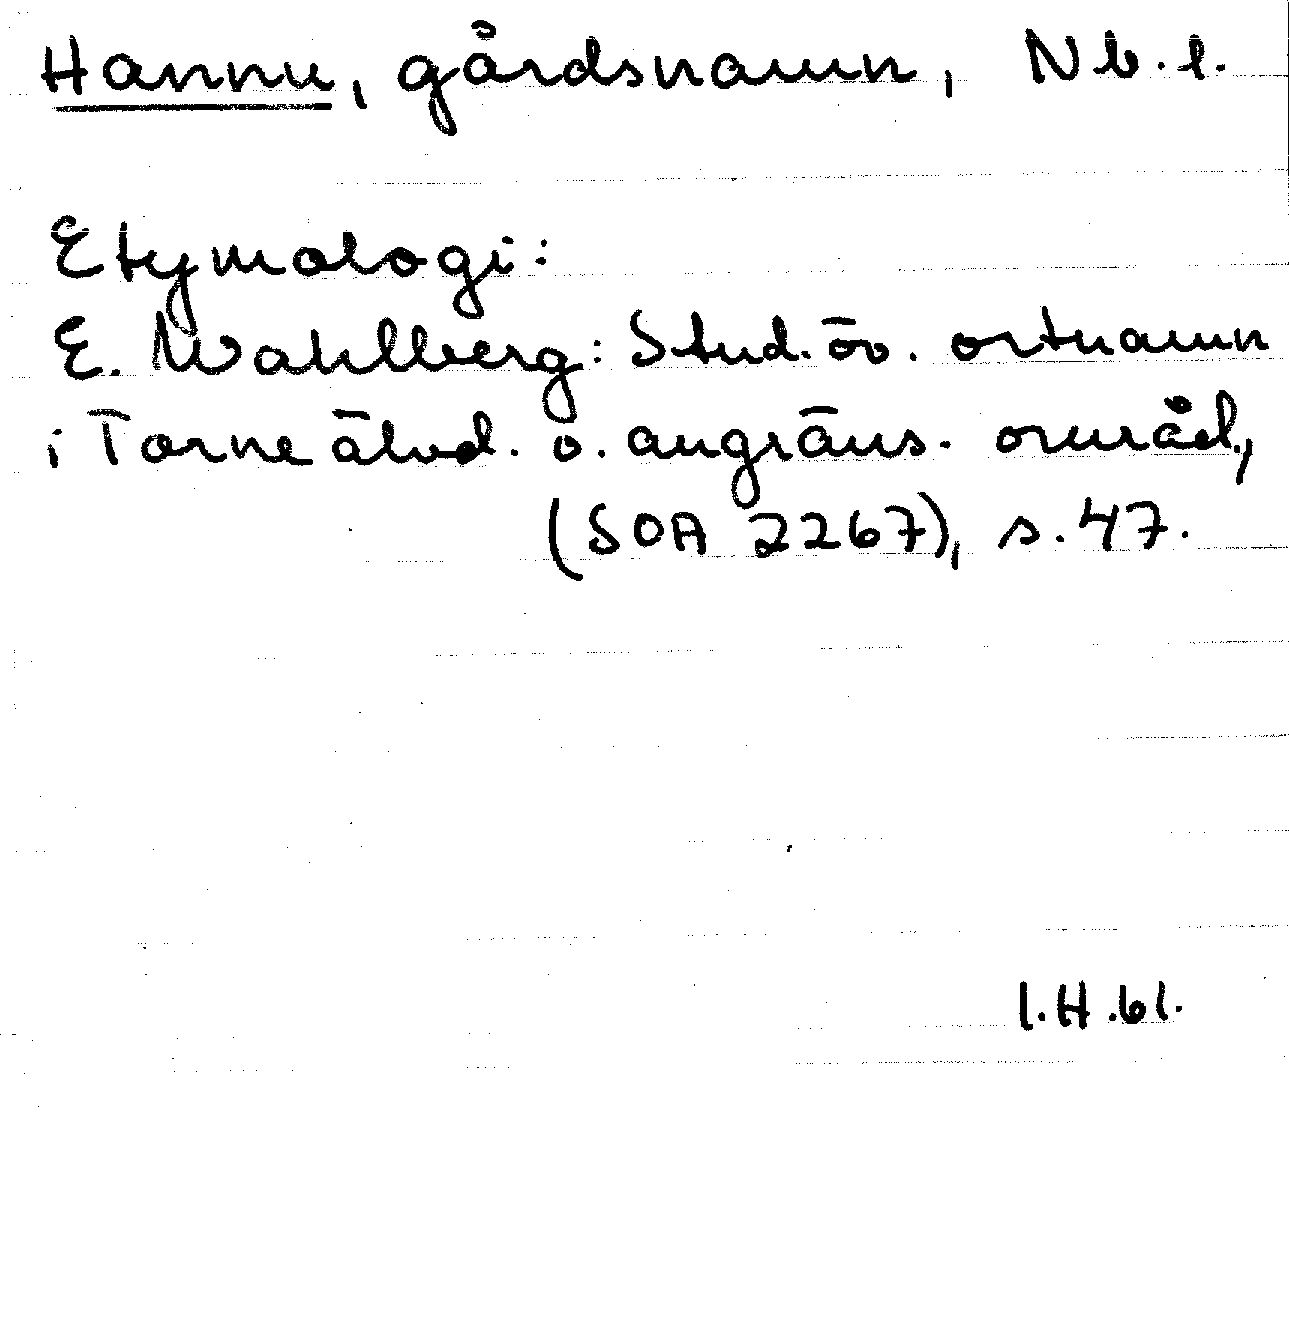 Hannu, gårdsnamn, Nb. l.
Etymologi:
E. Wahlberg: Stud. öv. ortnamn
i Torne älvd. o. angräns. områd.,
(SOA 2267), s. 47.
I.H.61.